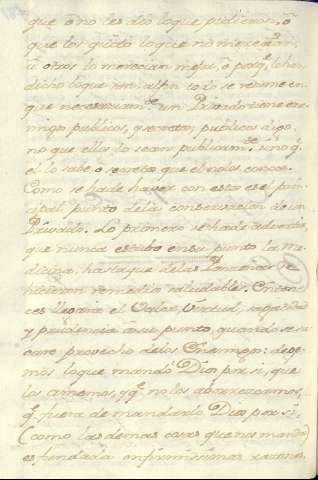 que ò no les dio loque pidieron, ò
que les quitò loque no merecian,
ù otros lo merecian mejor, ò porq̃ lo han
dicho loque no. alfin todo se resume en
que necesariam.te un Privado tiene ene-
migos publicos, y secretos, publicos digo,
no que ellos lo sean publicam.te sino q̃
el lo sabe, o secretos que el no los conoce.
Como se ha de haver con estos es el prin-
cipal punto dela conservacion de un
Privado. Lo primero se ha de advertir
que nunca estubo en su punto la me-
dicina, hasta que delas Ponzoñas se
hicieron remedios saludables. Enton-
ces llegarà el Valor, Virtud, sagacidad
y prudencia à su punto, quando se sa-
care provecho delos Enemigos: deje-
mos loque mandò Dios por si, que
los amemos, y q̃ no los aborrezcamos,
q̃ fuera de mandarlo Dios por si,
(como las demas cosas que nos mandò)
es fundada en firmissimas razones,